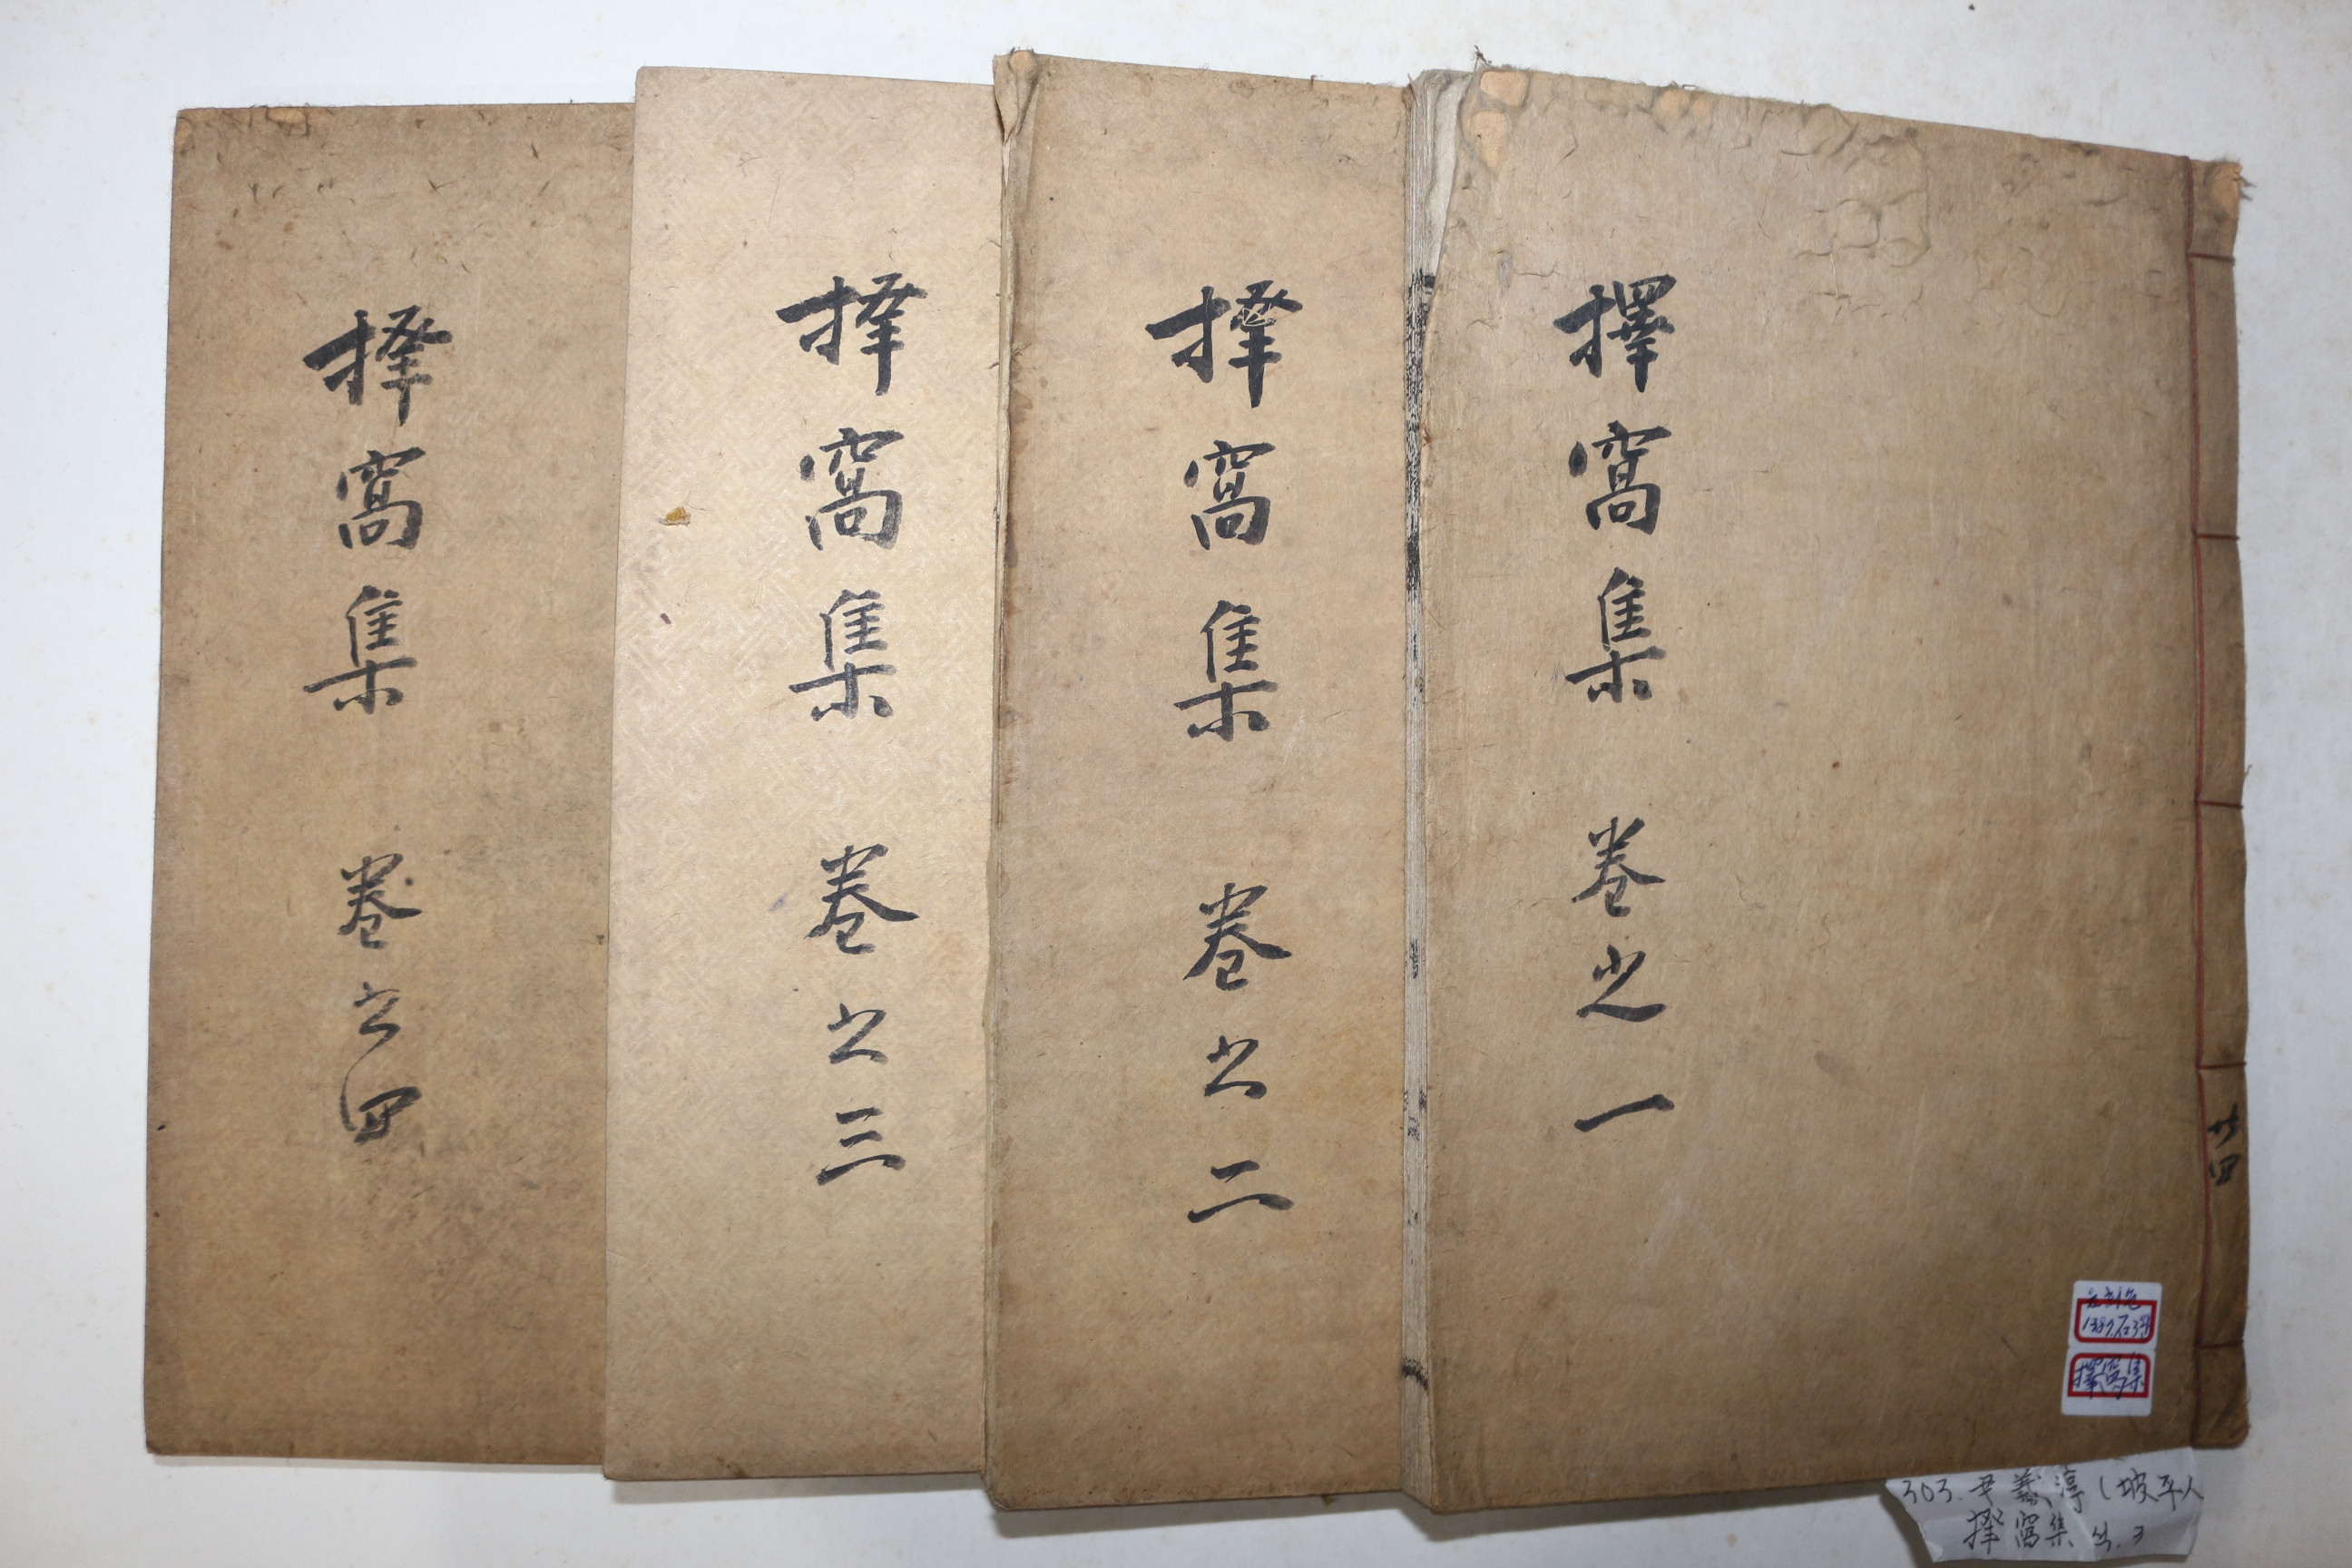 擇窩集 卷之一
擇窩集 卷之二
擇窩集 卷之三
擇窩集 卷之四
共四
擇窩集
303. 尹義淳 (坡平人
擇窩集